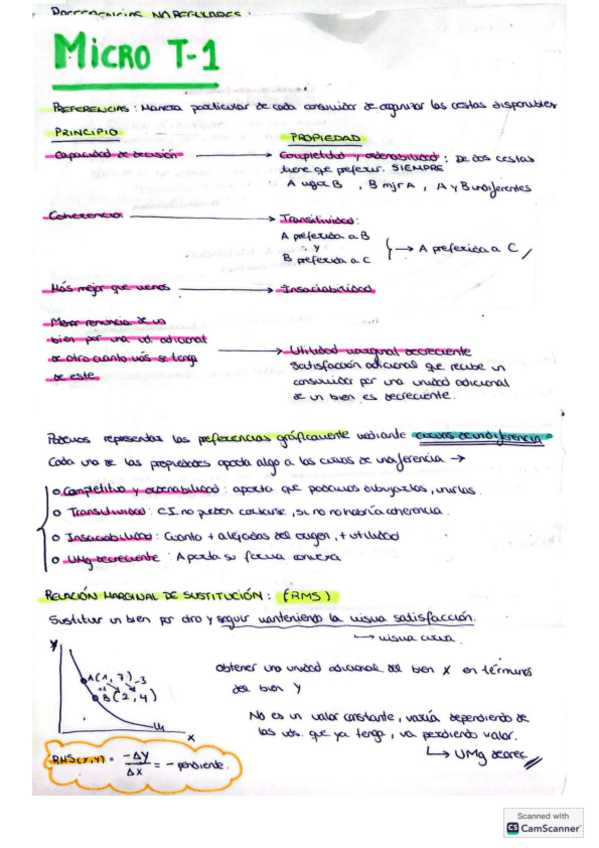 Preferencias NO REGULARES.
MICRO T-1
PREFERENCIAS: Manera particular de cada consumidor de organizar las cestas disponibles
PRINCIPIO
PROPIEDAD
Capacidad de decisión → Completitud y ordenabilidad: De dos cestas
tiene que preferir. SIEMPRE
A mjor B, B mjr A, A y B indiferentes
Coherencia → Transitividad:
A preferida a B
y
B preferida a C
→ A preferida a C
Más mejor que menos → Insaciabilidad
Menor renuncia de un
bien por una ud. adicional
de otro cuanto más se tenga
de este
→ Utilidad marginal decreciente
Satisfacción adicional que recibe un
consumidor por una unidad adicional
de un bien es decreciente.
Podemos representar las preferencias gráficamente mediante curvas de indiferencia
Cada una de las propiedades aporta algo a las curvas de indiferencia →
o Completitud y ordenabilidad: aporta que podamos dibujarlas, unirlas.
o Transitividad: C.I no pueden cortarse, si no no habría coherencia.
o Insaciabilidad: Cuanto + alejadas del origen, + utilidad
o UMg decreciente: Aporta su forma convexa
RELACIÓN MARGINAL DE SUSTITUCIÓN: (RMS)
Sustituir un bien por otro y seguir manteniendo la misma satisfacción.
→ misma curva.
y
A(1,7) -3
+1
B(2,4)
U1
x
obtener una unidad adicional del bien X en términos
del bien Y
No es un valor constante, varía dependiendo de
las uds. que ya tenga, va perdiendo valor.
→ UMg decrec
RMS(x,y) = -ΔY/ΔX = - pendiente.
Scanned with
CS CamScanner